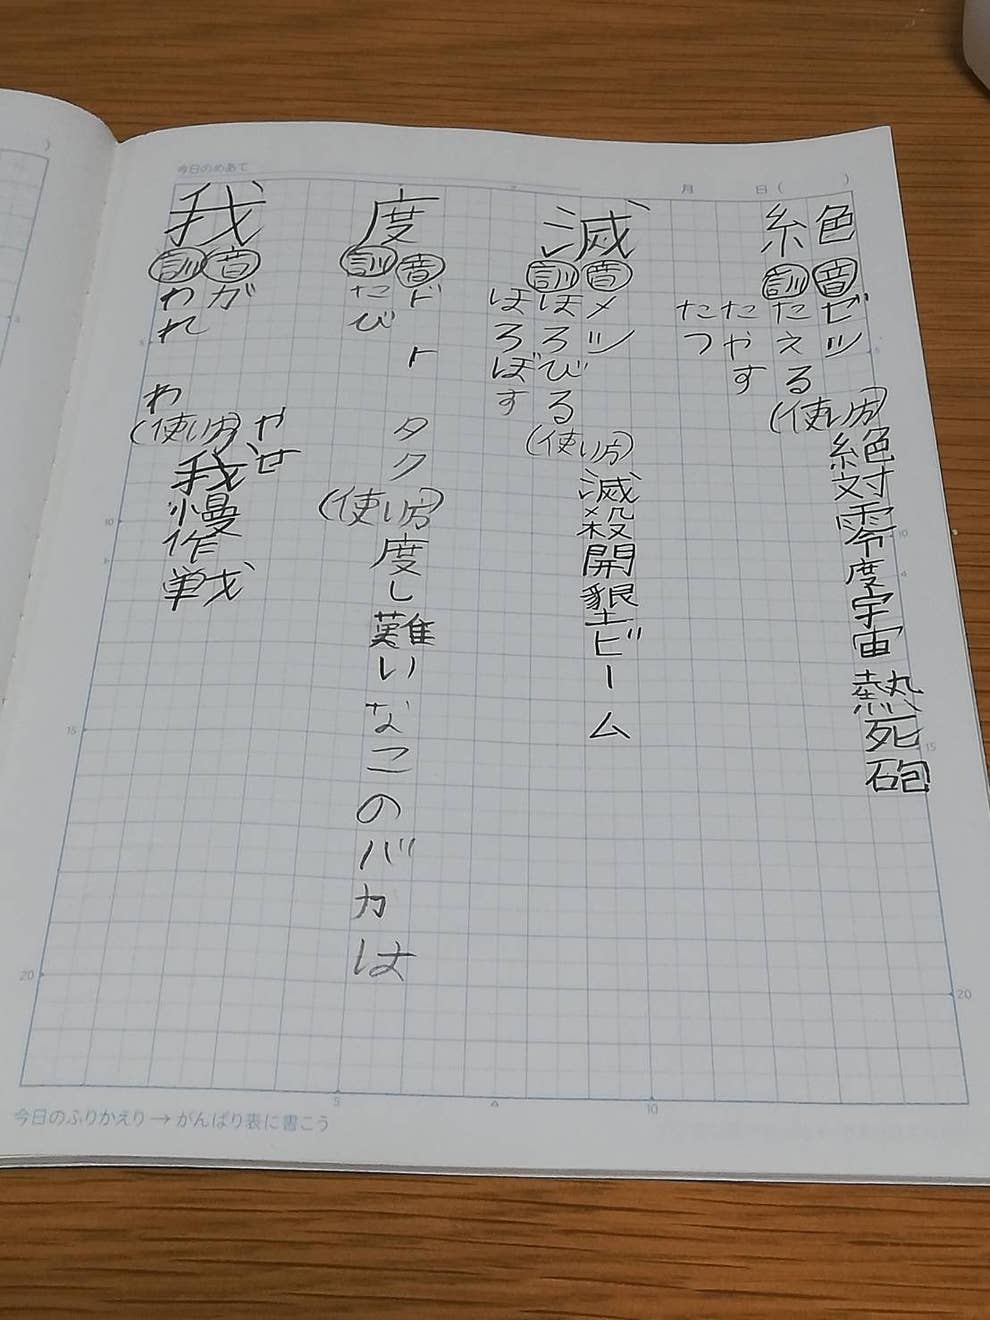 今日のめあて
月 日( )
絶
音 ゼツ
訓 たえる
たやす
たつ
(使い方)
絶対零度宇宙熱死砲
滅
音 メツ
訓 ほろびる
ほろぼす
(使い方)
滅殺開墾ビーム
度
音 ド ト タク
訓 たび
(使い方)
度し難いなこのバカは
我
音 ガ
訓 われ わ
(使い方)
やせ
我慢作戦
5
10
15
20
5
10
15
20
5
10
今日のふりかえり→がんばり表に書こう